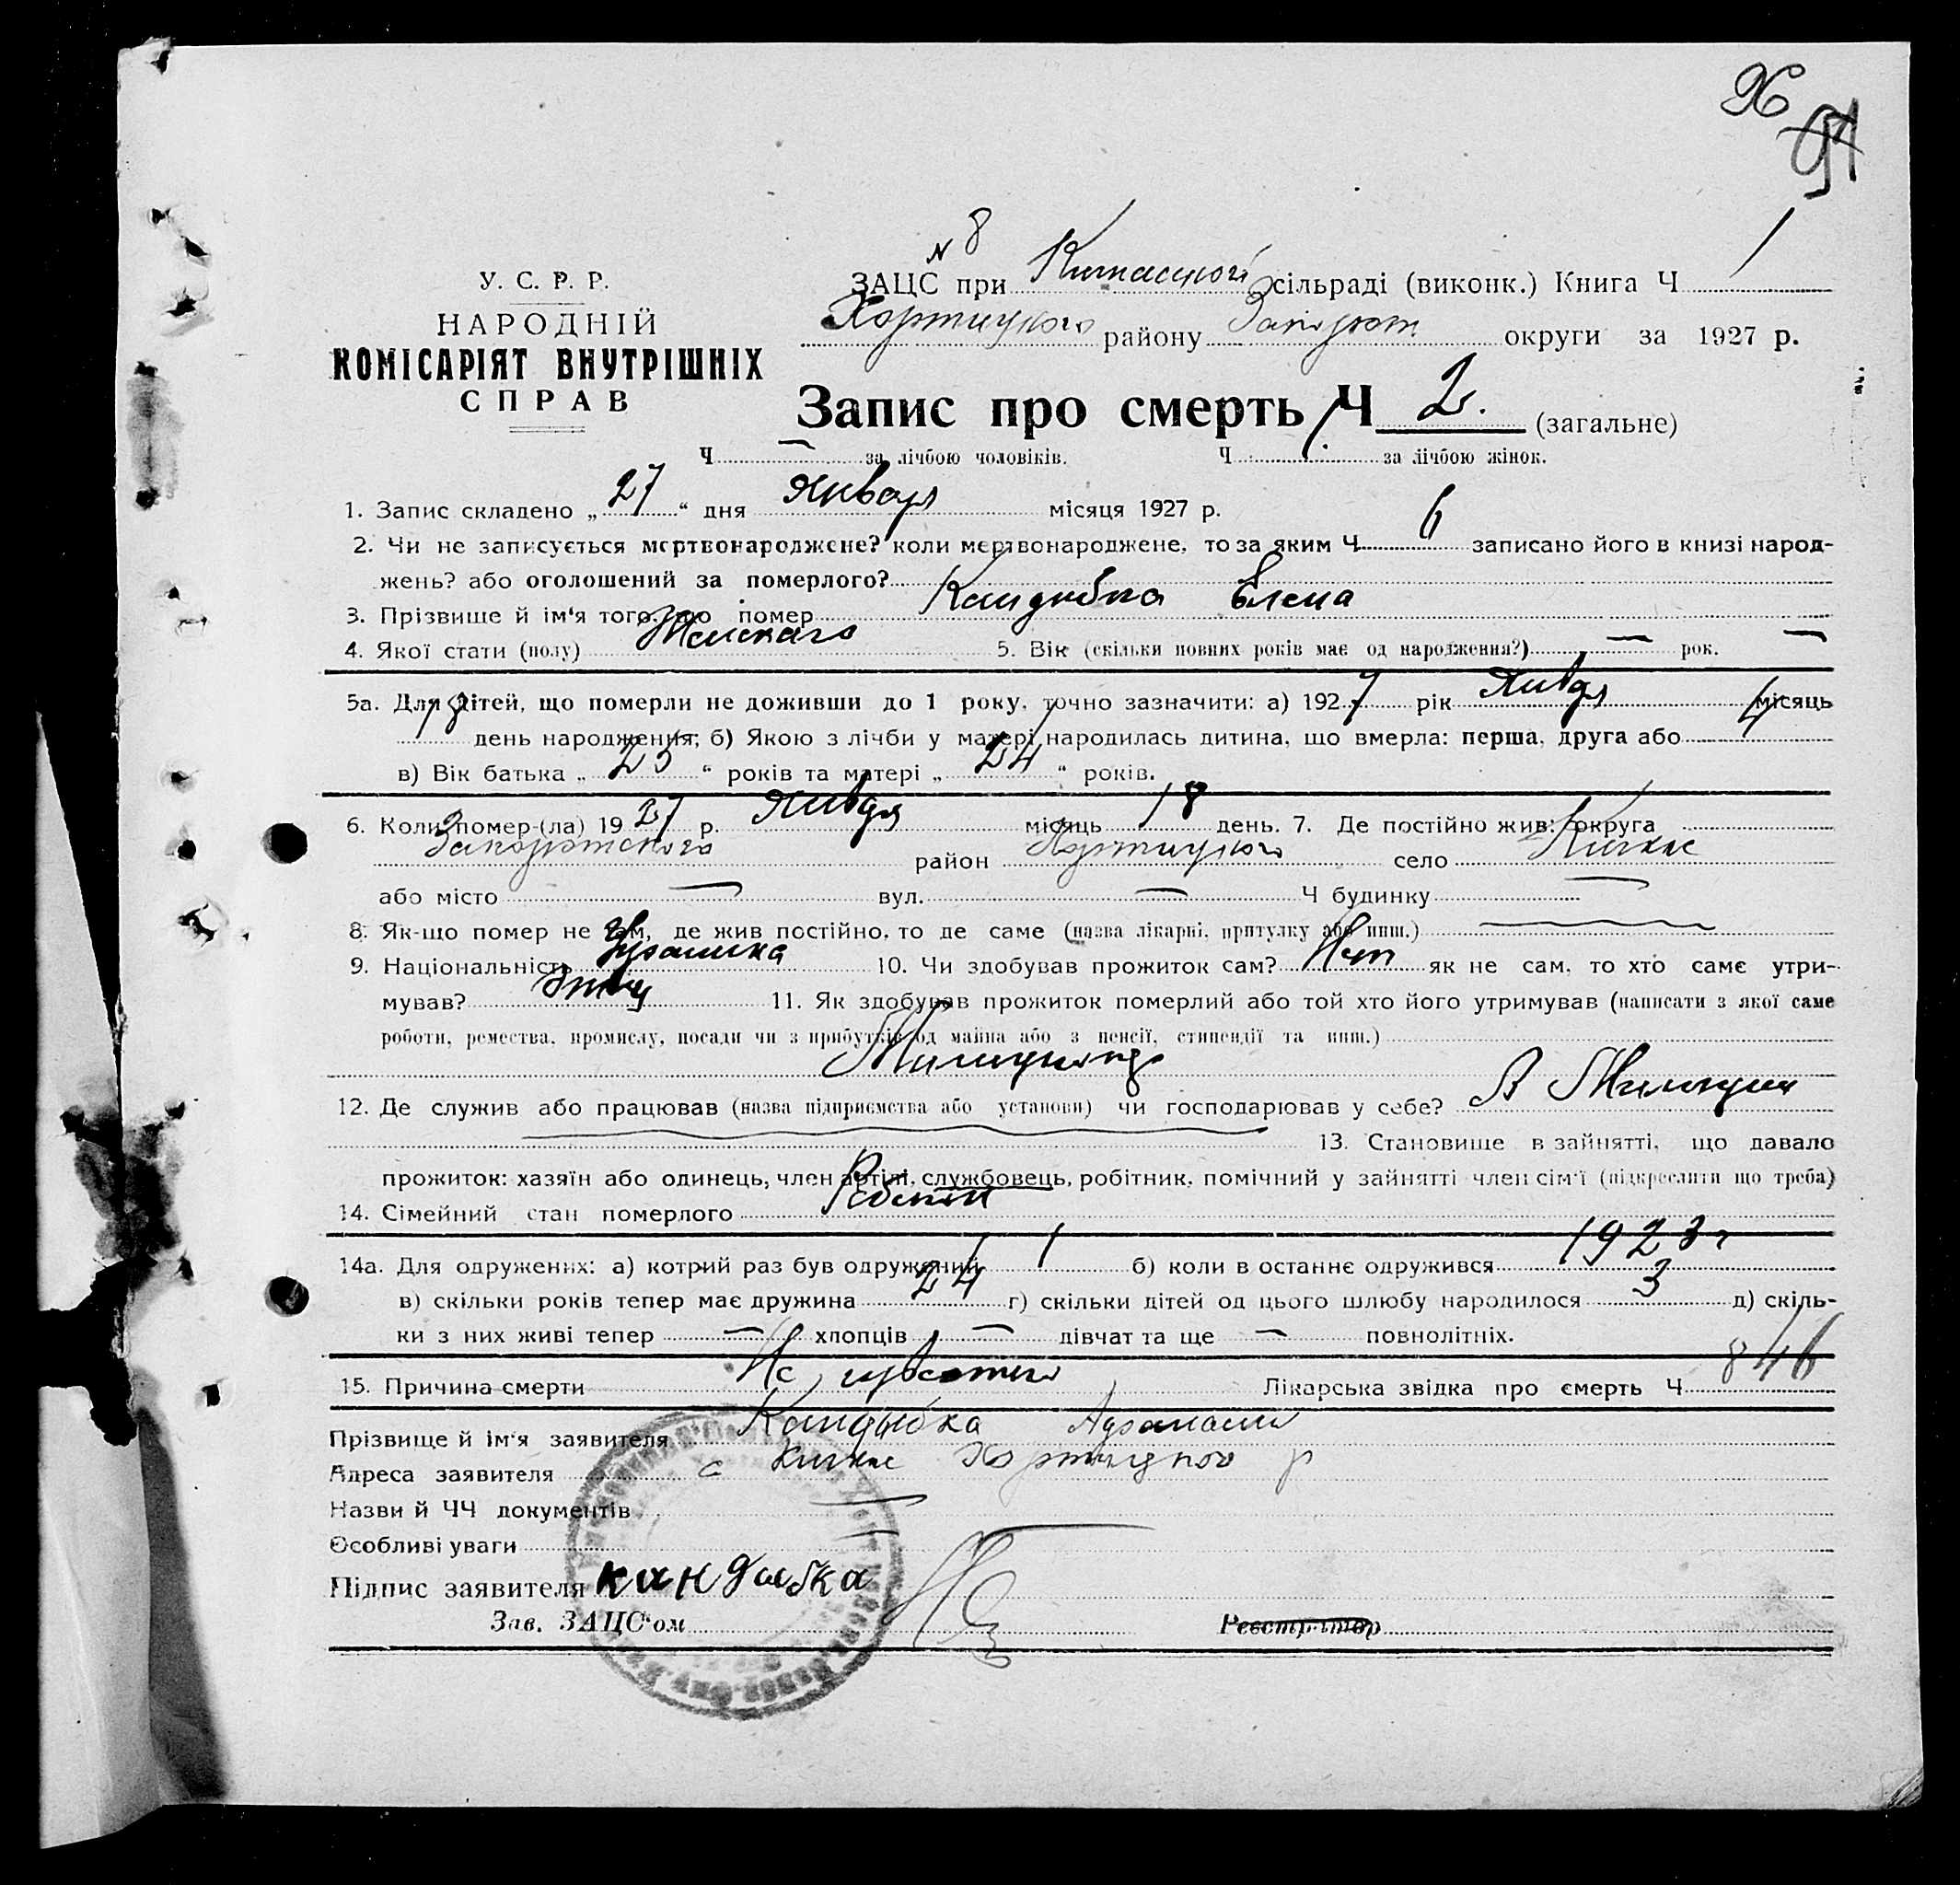 96
91
N 8
У. С. Р. Р.
НАРОДНІЙ
КОМІСАРІЯТ ВНУТРІШНІХ
СПРАВ
ЗАЦС при Кичкаской сільраді (виконк.) Книга Ч 1
Хортицкого району Запорож. округи за 1927 р.
Запис про смерть Ч 2. (загальне)
Ч — за лічбою чоловіків. Ч 1. за лічбою жінок.
1. Запис складено „ 27 “ дня Января місяця 1927 р.
2. Чи не записується мертвонароджене? коли мертвонароджене, то за яким Ч 6 записано його в книзі народ-
жень? або оголошений за померлого?
3. Прізвище й ім'я того, що помер Кандыбка Елена
4. Якої стати (полу) Женскаго 5. Вік (скільки повних років має од народження?) — рок. —
5а. Для дітей, що померли не доживши до 1 року, точно зазначити: а) 1927 рік Январ місяць
18 день народження; б) Якою з лічби у матері народилась дитина, що вмерла: перша, друга або 4
в) Вік батька „ 25 “ років та матері „ 24 “ років.
6. Коли помер-(ла) 1927 р. Января місяць 18 день. 7. Де постійно жив: округа
Запорожского район Хортицкого село Кичкас
або місто — вул. — Ч будинку —
8. Як-що помер не там, де жив постійно, то де саме (назва лікарні, притулку або инш.)
9. Національність Украинка 10. Чи здобував прожиток сам? Нет як не сам, то хто саме утри-
мував? Отец 11. Як здобував прожиток померлий або той хто його утримував (написати з якої саме
роботи, ремества, промислу, посади чи з прибутків од майна або з пенсії, стипендії та инш.)
12. Де служив або працював (назва підприємства або установи) чи господарював у себе? В Милиции
13. Становище в зайнятті, що давало
прожиток: хазяїн або одинець, член артілі, службовець, робітник, помічний у зайнятті член сім'ї (підкреслити що треба)
14. Сімейний стан померлого
14а. Для одружених: а) котрий раз був одружений 1 б) коли в останнє одружився 1923 г
в) скільки років тепер має дружина 24 г) скільки дітей од цього шлюбу народилося 3 д) скіль-
ки з них живі тепер — хлопців — дівчат та ще — повнолітніх.
15. Причина смерти Лікарська звідка про смерть Ч 846
Прізвище й ім'я заявителя Кандыбка
Адреса заявителя с Кичкас Хортицкого р
Назви й ЧЧ документів —
Особливі уваги —
Підпис заявителя кандыбка
Зав. ЗАЦС'ом
Реєстратор